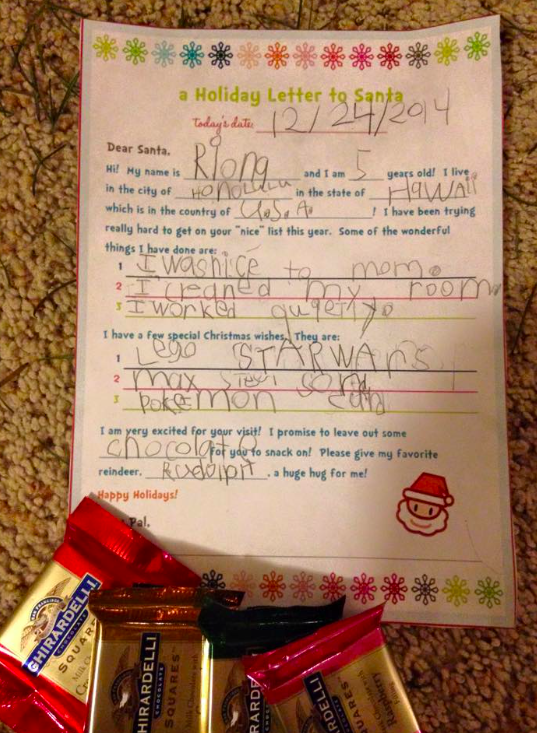 a Holiday Letter to Santa
Today's date: 12/24/2014
Dear Santa,
Hi! My name is Riong and I am 5 years old! I live
in the city of HONOLULU in the state of HAWAii
which is in the country of U.S.A. ! I have been trying
really hard to get on your "nice" list this year. Some of the wonderful
things I have done are:
1 I was nice to mom.
2 I creaned my room.
3 I worked quietly.
I have a few special Christmas wishes. They are:
1 Lego STARWARS
2 max steel
3 pokemon card
I am very excited for your visit! I promise to leave out some
chocolate for you to snack on! Please give my favorite
reindeer, Rudolph, a huge hug for me!
Happy Holidays!
Pal,
GHIRARDELLI
CHOCOLATE
SQUARES
Milk
HIRARDELLI
SQUARES
RDELLI
QUARES
Raspberry